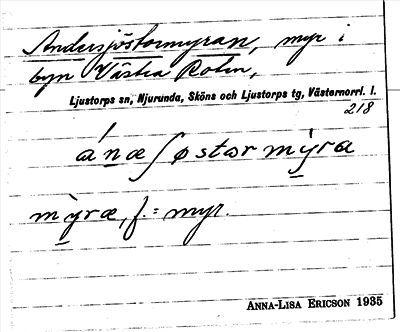 Andersjöstormyran, myr i
byn Västra Roten,
Ljustorps sn, Njurunda, Sköns och Ljustorps tg, Västernorrl. l.
218
ánæʃøstor mỳra
mỳræ, f. = myr.
ANNA-LISA ERICSON 1935